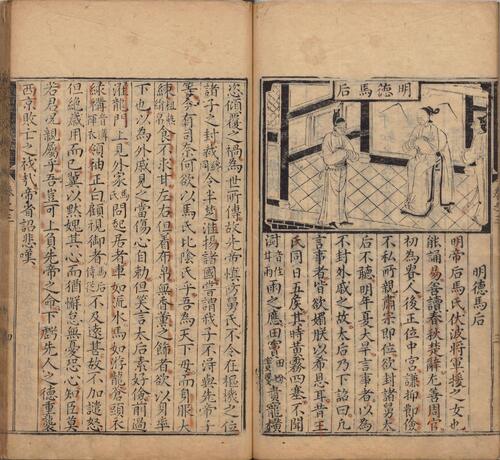 明德馬后
明德馬后
明帝后馬氏伏波將軍援之女也
能誦易善讀春秋楚辭尤善周官
初為貴人後正位中宮謙抑節儉
不私所親肅宗即位欲封諸舅太
后不聽明年夏大旱言事者以為
不封外戚之故太后乃下詔曰凡
言事者皆欲媚朕以希恩耳昔王
氏同日五侯其時黃霧四塞不聞
澍雨之應田竇田蚡竇嬰貴寵橫
恣傾覆之禍為世所傳故先帝慎防舅氏不令在樞機之位
諸子之封裁令半楚淮揚諸國嘗謂我子不得與先帝子
等今有司奈何欲以馬氏比陰氏乎吾為天下母而身服大
練食不求甘左右但着布帛無香薰之飾者欲以身率
下也以為外戚見之當傷心自勅但笑言太后素好儉前過
濯龍門上見外家馬氏問起居者車如流水馬如游龍蒼頭衣
綠褠領袖正白顧視御者不及遠甚故不加譴怒
但絕歲用而已冀以默媿其心而猶懈怠無憂恐心知臣莫
若君況親屬乎吾豈可上負先帝之命下虧先人之德重襲
西京敗亡之禍哉帝省詔悲嘆